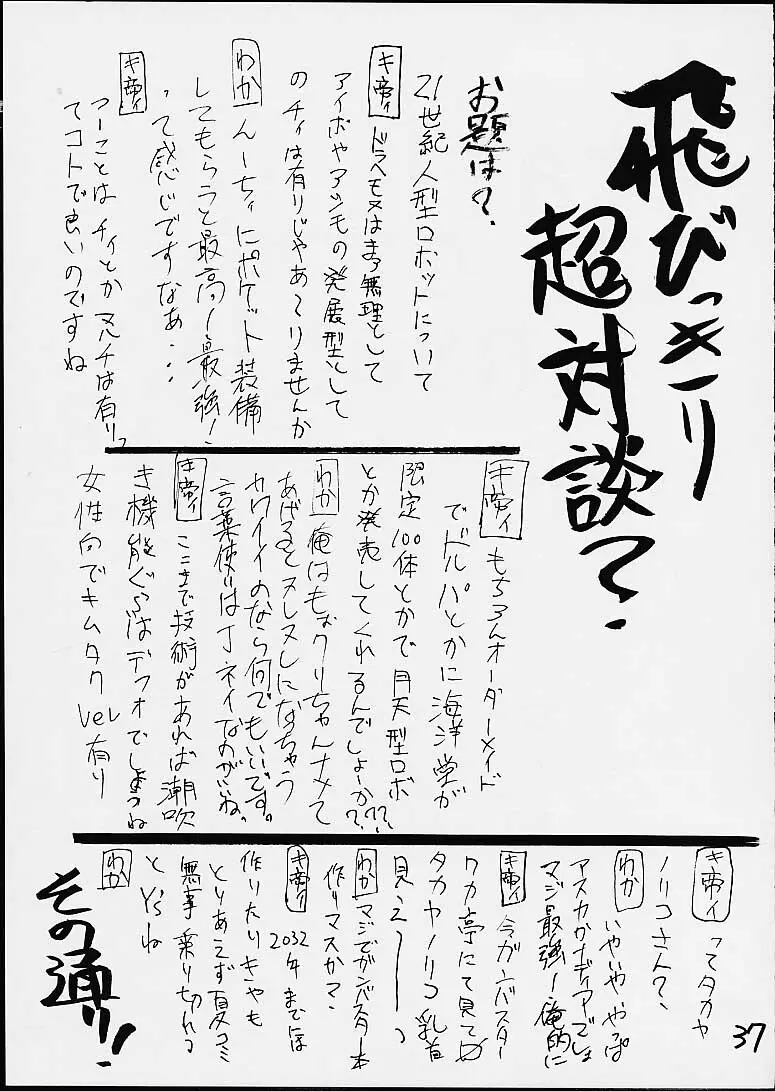 飛びっきり
超対談?
お題は?
21世紀人型ロボットについて
キ帝ィ ドラえもんはまず無理として
アイボやアシモの発展型として
のチィは有りじゃあーりませんか
わか んーちぃにポケット装備
してもらうと最高ー!最強!
って感じですなぁ・・・
キ帝ィ
つーことは チィとかマルチは有りっ
てコトで良いのですね
キ帝ィ もちろんオーダーメイド
でドルパとかに海洋堂が
限定100体とかで月天型ロボ
とか発売してくれるんでしょーか??
わか 俺はもぉクリちゃんナメて
あげるとヌレヌレになっちゃう
カワイイのなら何でもいいです。
言葉使いは丁ネイなのがいいね。
キ帝ィ ここまで技術があれば潮吹
き機能ぐらいはデフォでしょうね
女性向でキムタクver有り
キ帝ィ ってタカヤ
ノリコさん?
わか いやいややっぱ
アスカかナディアでしょ
マジ最強!俺的に
キ帝ィ 今ガンバスター
ワカ亭にて見てゐ
タカヤノリコ乳首
見えーーっ
わか マジでガンバスター本
作りマスか?
キ帝ィ 2032年までには
作りたりきゃも
とりあえず夏コミ
無事乗り切れっ
とY'sね
わか
その通り!
37